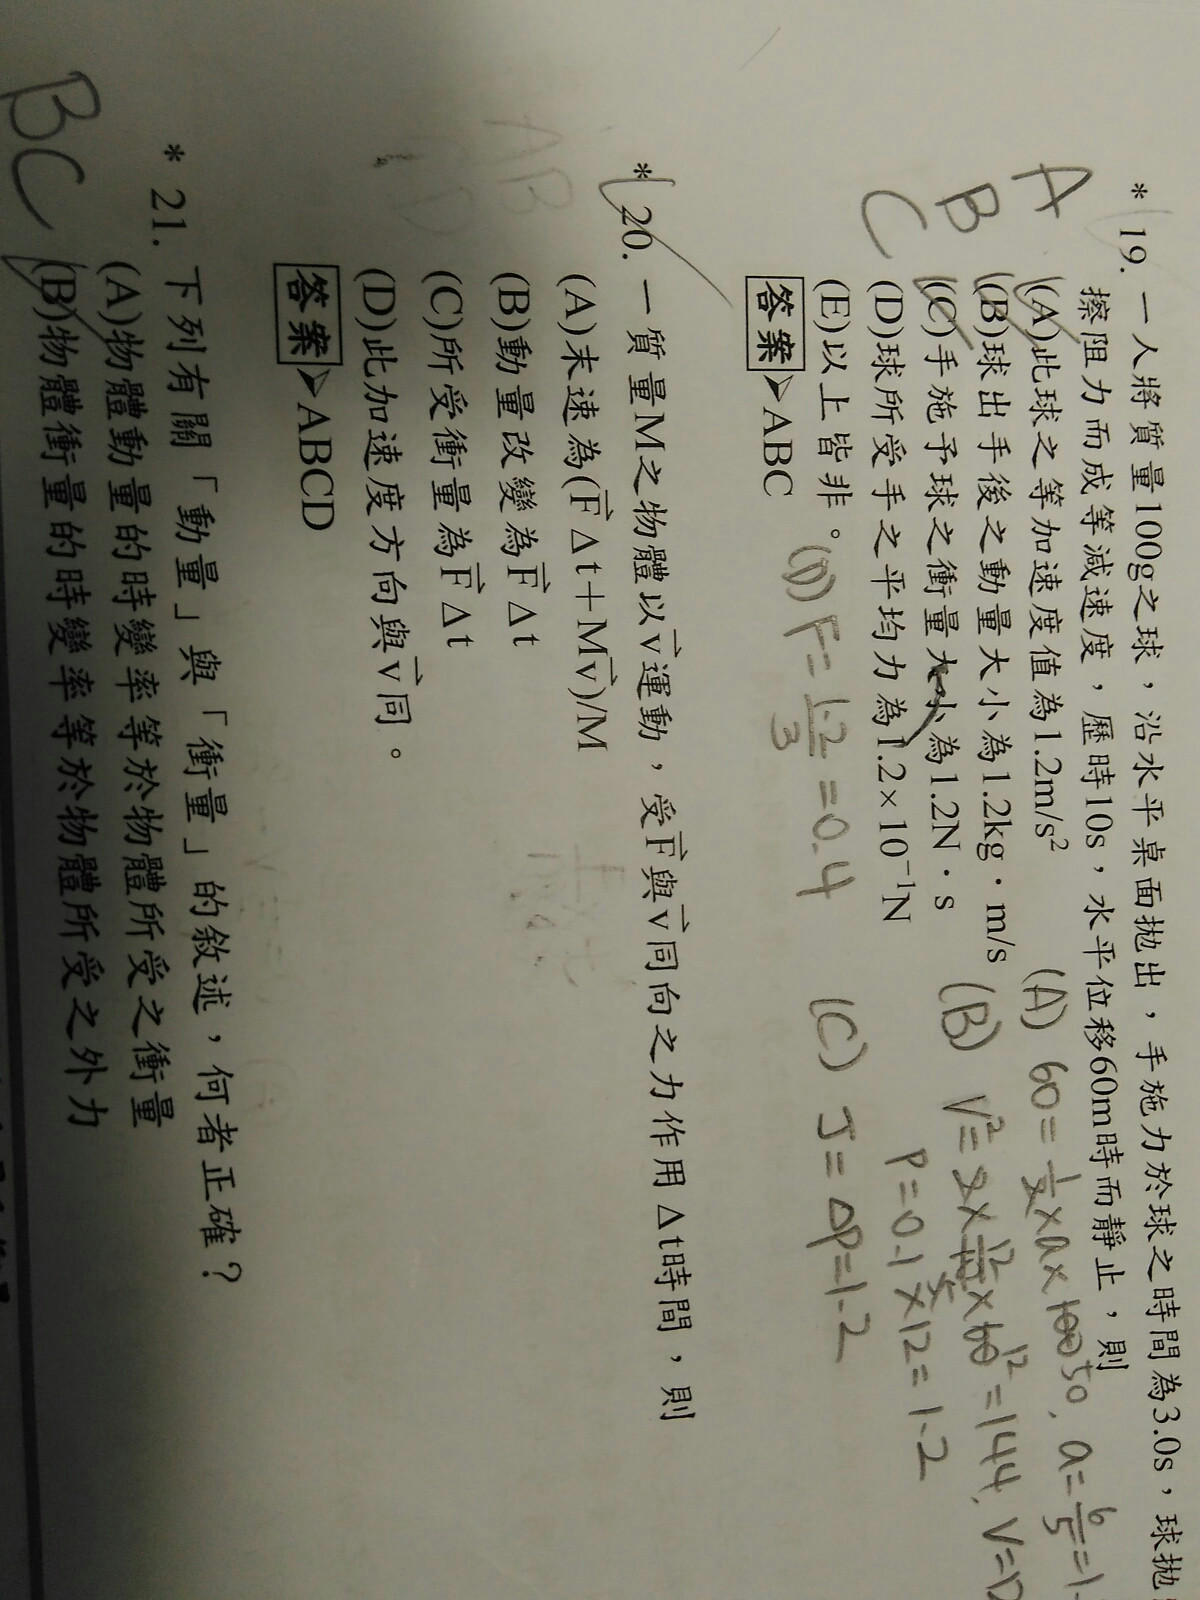 * 19. 一人將質量100g之球，沿水平桌面拋出，手施力於球之時間為3.0s，球拋
擦阻力而成等減速度，歷時10s，水平位移60m時而靜止，則
A (A)此球之等加速度值為1.2m/s² (A) 60=½×a×100 50, a=6/5=1.
B (B)球出手後之動量大小為1.2kg·m/s (B) V²=2×12/10×60 12=144, V=12
C (C)手施予球之衝量大小為1.2N·s P=0.1×12=1.2
(D)球所受手之平均力為1.2×10⁻¹N (C) J=ΔP=1.2
(E)以上皆非。 (D) F=1.2/3=0.4
答案➤ABC
* 20. 一質量M之物體以v⃗運動，受F⃗與v⃗同向之力作用Δt時間，則
(A)末速為(F⃗Δt＋Mv⃗)/M
(B)動量改變為F⃗Δt
(C)所受衝量為F⃗Δt
(D)此加速度方向與v⃗同。
答案➤ABCD
* 21. 下列有關「動量」與「衝量」的敘述，何者正確？
(A)物體動量的時變率等於物體所受之衝量
BC (B)物體衝量的時變率等於物體所受之外力